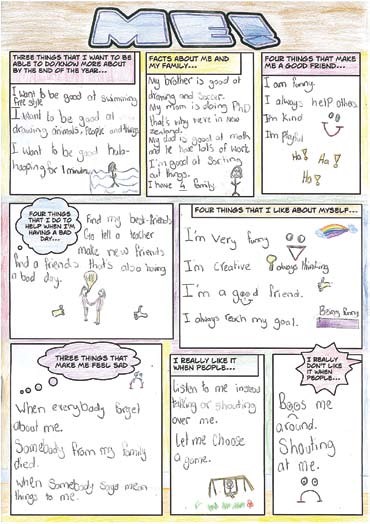 ME!
THREE THINGS THAT I WANT TO BE
ABLE TO DO/KNOW MORE ABOUT
BY THE END OF THE YEAR...
I want to be good at swimming
free style
I want to be good at
drawing animals, people and things
I want to be good hula-
hooping for 1 minute
FACTS ABOUT ME AND
MY FAMILY...
My brother is good at
drawing and soccer.
My mom is doing PhD
that's why here in new
zealand.
My dad is good at math
and he have lots of work
I'm good at Sorting
out things.
I have 4 family.
FOUR THINGS THAT MAKE
ME A GOOD FRIEND...
I am funny.
I always help others
I'm kind
I'm playful
Ha!
Ha!
Ha!
FOUR THINGS
THAT I DO TO
HELP WHEN I'M
HAVING A BAD
DAY...
Find my best-friends
Go tell a teacher
make new friends
find a friends that's also having
a bad day.
FOUR THINGS THAT I LIKE ABOUT MYSELF...
I'm very funny
I'm creative always thinking
I'm a good friend.
I always reach my goal.
Being funny
THREE THINGS THAT
MAKE ME FEEL SAD
When everybody forget
about me.
Somebody from my family
died.
When Somebody says mean
things to me.
I REALLY LIKE IT
WHEN PEOPLE...
Listen to me instead
talking or shouting
over me.
Let me choose
a game.
I REALLY
DON'T LIKE
IT WHEN
PEOPLE...
Boss me
around.
Shouting
at me.